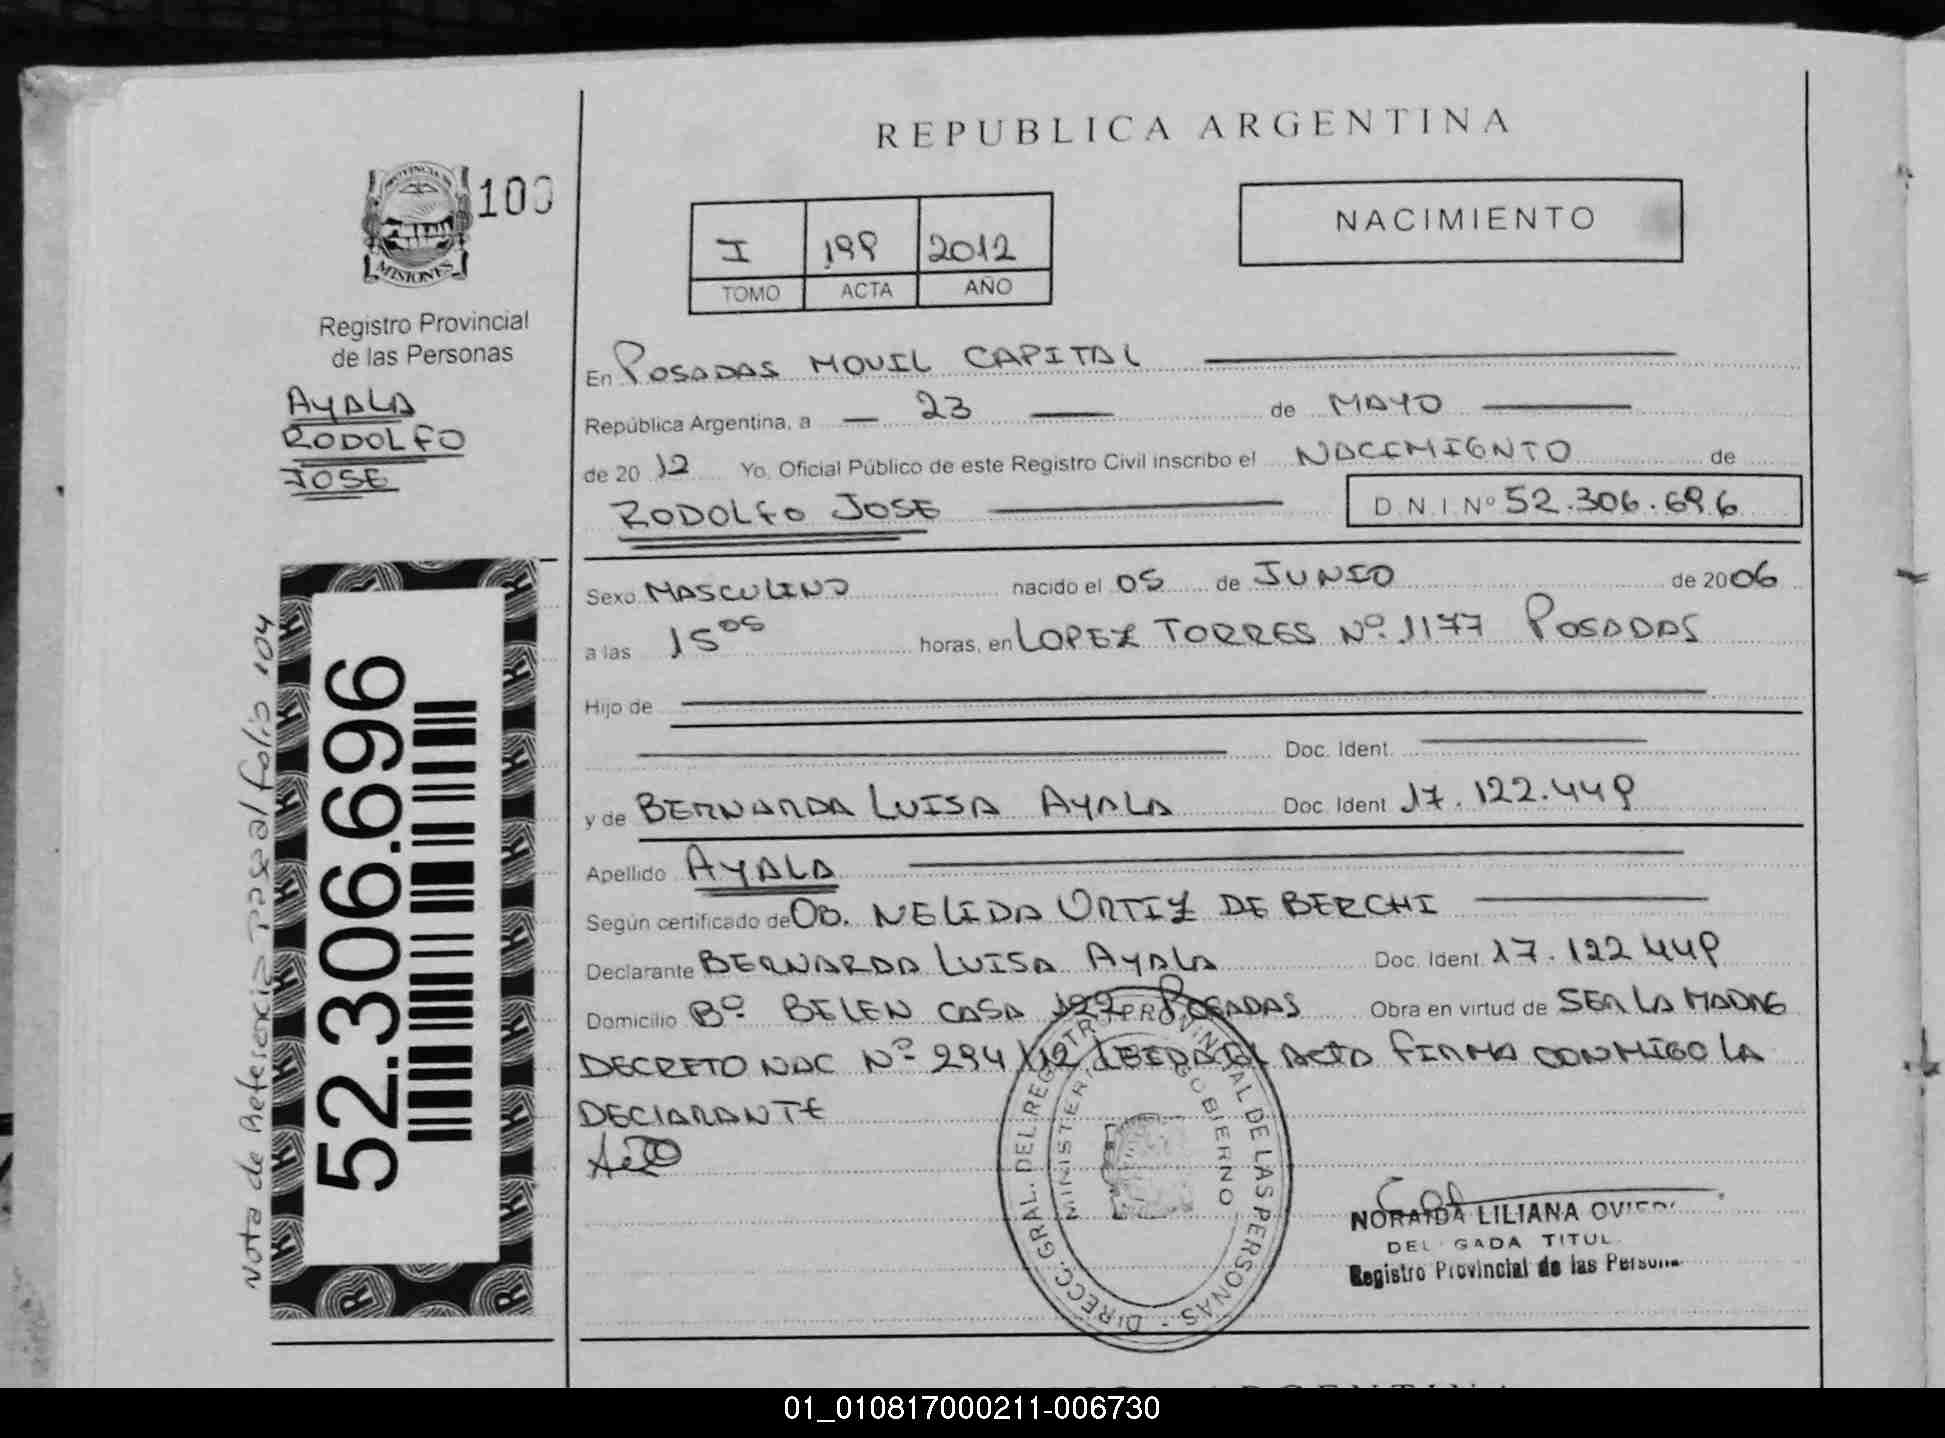 REPUBLICA ARGENTINA
PROVINCIA DE
MISIONES
100
Registro Provincial
de las Personas
AYALA
RODOLFO
JOSE
I 199 2012
TOMO ACTA AÑO
NACIMIENTO
En POSADAS MOVIL CAPITAL
República Argentina, a 23 de MAYO
de 2012 Yo, Oficial Público de este Registro Civil inscribo el NACIMIENTO de
RODOLFO JOSE D.N.I. Nº 52.306.696
Sexo MASCULINO nacido el 05 de JUNIO de 2006
a las 15 05 horas, en LOPEZ TORRES Nº 1177 POSADAS
Hijo de
Doc. Ident.
y de BERNARDA LUISA AYALA Doc. Ident 17.122.449
Apellido AYALA
Según certificado de OB. NELIDA ORTIZ DE BERCHI
Declarante BERNARDA LUISA AYALA Doc. Ident 17.122.449
Domicilio Bº BELEN CASA POSADAS Obra en virtud de SER LA MADRE
DECRETO NAC Nº 294/12 LEIDA EL ACTA FIRMA CONMIGO LA
DECLARANTE
DIRECC. GRAL. DEL REGISTRO PROVINCIAL DE LAS PERSONAS
MINISTERIO GOBIERNO
NORAIDA LILIANA OVIEDO
DEL GADA TITUL
Registro Provincial de las Persona
52.306.696
Nota de Referencia Pasa al folio 104
01_010817000211-006730